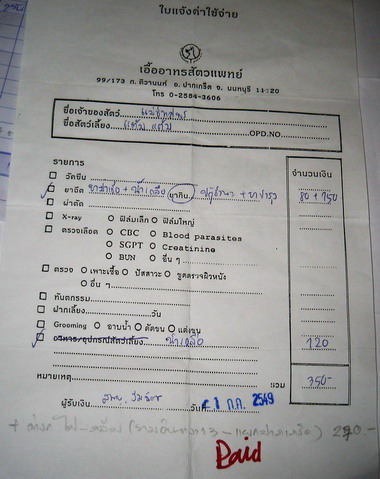 ใบแจ้งค่าใช้จ่าย
เอื้ออาทรสัตวแพทย์
99/173 ถ. ติวานนท์ อ. ปากเกร็ด จ. นนทบุรี 11120
โทร 0-2584-3606
ชื่อเจ้าของสัตว์
ชื่อสัตว์เลี้ยง แต้ม แต๋ม OPD.NO.
รายการ จำนวนเงิน
วัคซีน
ยาฉีด ยาฆ่าเชื้อ + น้ำเกลือ ยากิน + ยาบำรุง 80 + 150
ผ่าตัด
X-ray ฟิล์มเล็ก ฟิล์มใหญ่
ตรวจเลือด CBC Blood parasites
SGPT Creatinine
BUN อื่น ๆ
ตรวจ เพาะเชื้อ ปัสสาวะ ขูดตรวจผิวหนัง
อื่น ๆ
ทันตกรรม
ฝากเลี้ยง วัน
Grooming อาบน้ำ ตัดขน แต่งขน
อาหาร/อุปกรณ์สัตว์เลี้ยง น้ำเกลือ 120
หมายเหตุ รวม 350-
ผู้รับเงิน วันที่ 1 ก.ค. 2549
Paid